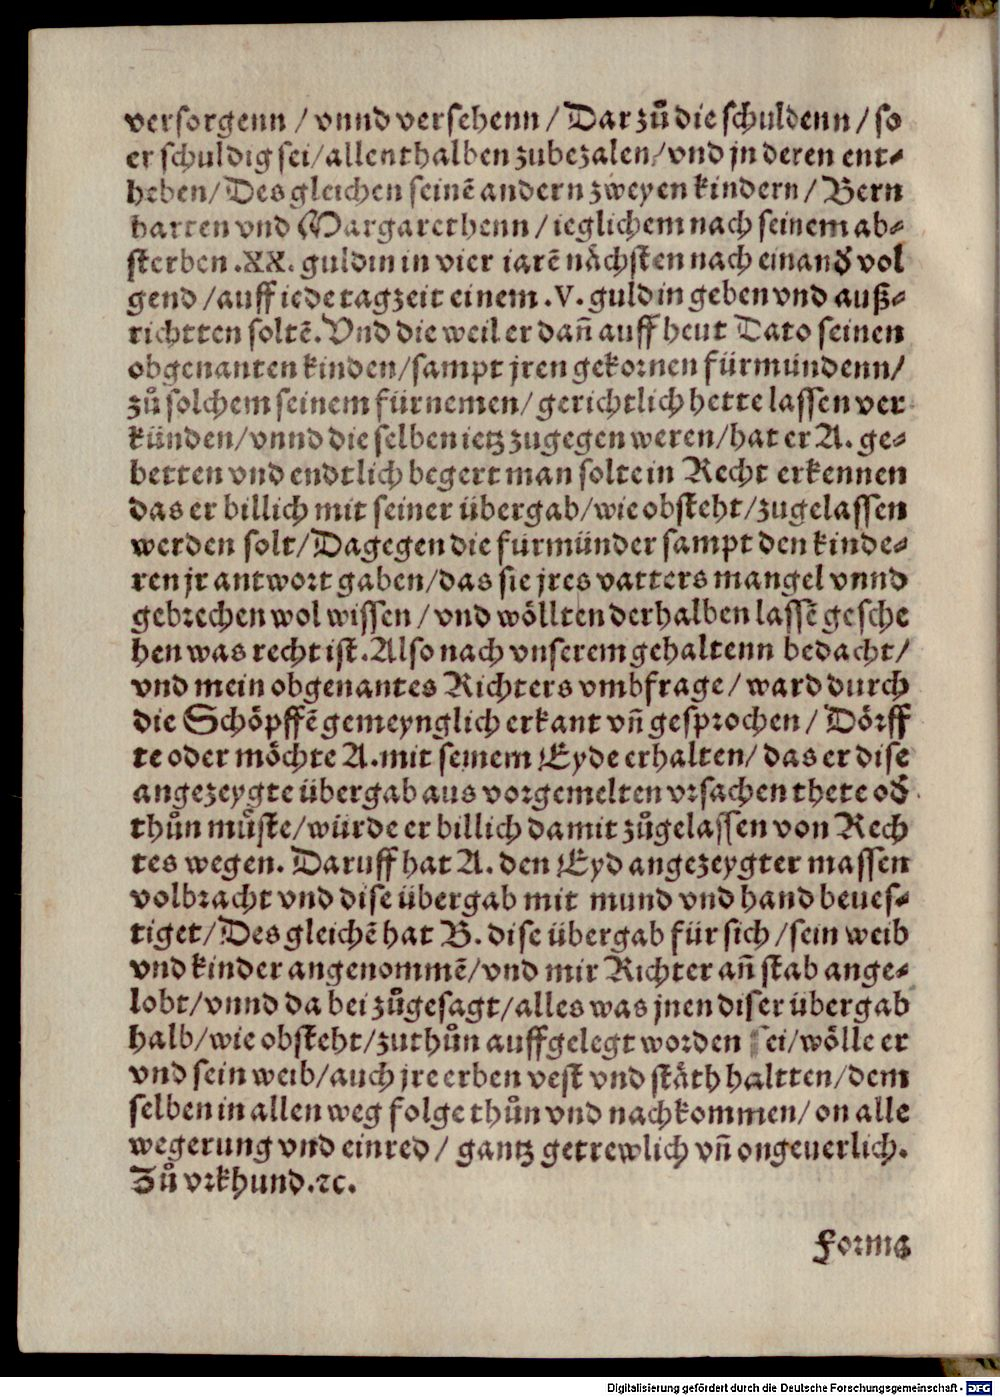 versorgenn / vnnd versehenn / Dar zů die schuldenn / so
er schuldig sei / allenthalben zubezalen / vnd jn deren ent⸗
heben / Des gleichen seinē andern zweyen kindern / Bern
harten vnd Margarethenn / ieglichem nach seinem ab⸗
sterben .XX. guldin in vier iarē nächsten nach einand̛ vol
gend / auff iede tagzeit einem .V. guldin geben vnd auß⸗
richtten soltē. Vnd die weil er dañ auff heut Dato seinen
obgenanten kinden / sampt jren gekornen fürmündenn /
zů solchem seinem fürnemen / gerichtlich hette lassen ver
künden / vnnd die selben ietz zugegen weren / hat er A. ge⸗
betten vnd endtlich begert man solte in Recht erkennen
das er billich mit seiner übergab / wie obsteht / zugelassen
werden solt / Dagegen die fürmünder sampt den kinde⸗
ren jr antwort gaben / das sie jres vatters mangel vnnd
gebrechen wol wissen / vnd wöllten derhalben lassē gesche
hen was recht ist. Also nach vnserem gehaltenn bedacht /
vnd mein obgenantes Richters vmbfrage / ward durch
die Schöpffē gemeynglich erkant vñ gesprochen / Dörff
te oder möchte A. mit seinem Eyde erhalten / das er dise
angezeygte übergab aus vorgemelten vrsachen thete od̛
thůn můste / würde er billich damit zůgelassen von Rech
tes wegen. Daruff hat A. den Eyd angezeygter massen
volbracht vnd dise übergab mit mund vnd hand beues⸗
tiget / Des gleichē hat B. dise übergab für sich / sein weib
vnd kinder angenommē / vnd mir Richter añ stab ange⸗
lobt / vnnd da bei zůgesagt / alles was jnen diser übergab
halb / wie obsteht / zuthůn auffgelegt worden sei / wölle er
vnd sein weib / auch jre erben vest vnd stäth haltten / dem
selben in allen weg folge thůn vnd nachkommen / on alle
wegerung vnd einred / gantz getrewlich vñ ongeuerlich.
Zů vrkhund. ꝛc.
Forma
Digitalisierung gefördert durch die Deutsche Forschungsgemeinschaft - DFG